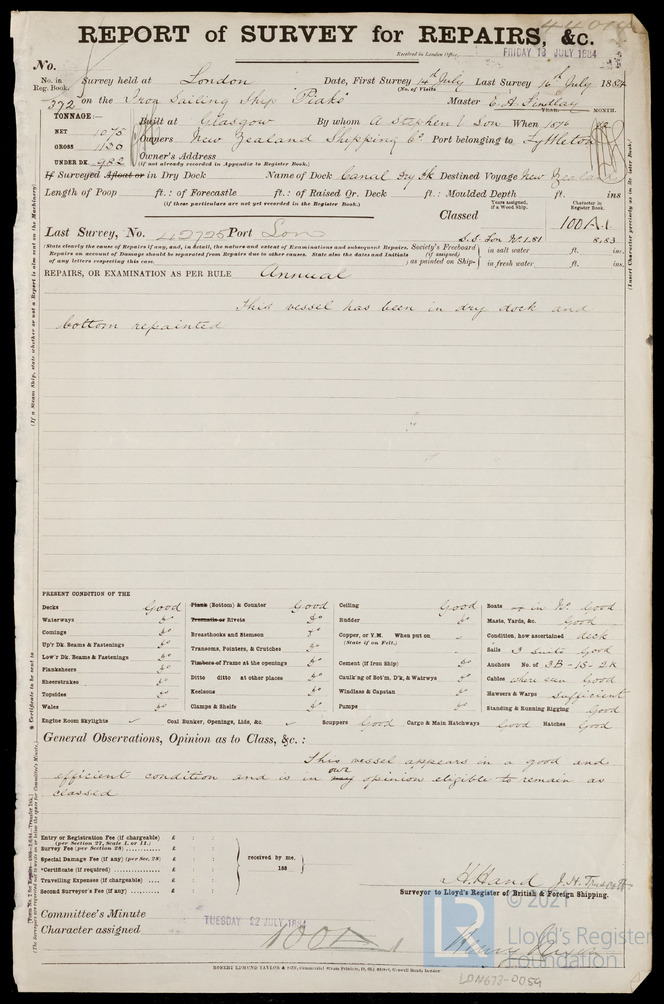 REPORT of SURVEY for REPAIRS, &c.
Received in London Office, FRIDAY 18 JULY 1884
No.
No. in Reg. Book. Survey held at London Date, First Survey 14th July Last Survey 16th July 1884
(No. of Visits
372 on the Iron Sailing Ship Piako Master E. A. Findlay
TONNAGE:— YEAR. MONTH.
Built at Glasgow By whom A Stephen & Son When 1876
NET 1075
GROSS 1130 Owners New Zealand Shipping Co. Port belonging to Lyttleton
UNDER DK. 982 Owner's Address
(if not already recorded in Appendix to Register Book.)
If Surveyed Afloat or in Dry Dock Name of Dock Canal Dry Dk Destined Voyage New Zealand
Length of Poop ft. : of Forecastle ft. : of Raised Qr. Deck ft. : Moulded Depth ft. ins
(if these particulars are not yet recorded in the Register Book.)
Years assigned, if a Wood Ship. Character in Register Book.
Classed 100A.1
Last Survey, No. 42725 Port Lon S.S. Lon No. 1.81 8.83
(State clearly the cause of Repairs if any, and, in detail, the nature and extent of Examinations and subsequent Repairs. Society's Freeboard in salt water ft. ins.
Repairs on account of Damage should be separated from Repairs due to other causes. State also the dates and Initials (if assigned)
of any letters respecting this case.) as painted on Ship- in fresh water ft. ins.
REPAIRS, OR EXAMINATION AS PER RULE Annual
This vessel has been in dry dock and
bottom repainted
PRESENT CONDITION OF THE
Decks Good Plank (Bottom) & Counter Good Ceiling Good Boats in No. Good
Waterways do Treenails or Rivets do Rudder do Masts, Yards, &c. Good
Comings do Breasthooks and Stemson do Copper, or Y.M. When put on Condition, how ascertained deck
(State if on Felt.)
Up'r Dk. Beams & Fastenings do Transoms, Pointers, & Crutches do Sails 3 suits Good
Low'r Dk. Beams & Fastenings do Timbers or Frame at the openings do Cement (if Iron Ship) do Anchors No. of 3B-1S-2K
Planksheers do Ditto ditto at other places do Caulk'ng of Bot'm, D'k, & Watrwys do Cables where seen Good
Sheerstrakes do Keelsons do Windlass & Capstan do Hawsers & Warps Sufficient
Topsides do Clamps & Shelfs do Pumps do Standing & Running Rigging Good
Wales do
Engine Room Skylights Coal Bunker, Openings, Lids, &c. Scuppers Good Cargo & Main Hatchways Good Hatches Good
General Observations, Opinion as to Class, &c. :
This vessel appears in a good and
efficient condition and is in my our opinion eligible to remain as
classed
Entry or Registration Fee (if chargeable) £ : :
(per Section 27, Scale I. or II.)
Survey Fee (per Section 28) £ : :
Special Damage Fee (if any) (per Sec. 28) £ : : received by me,
*Certificate (if required) £ : : 188
Travelling Expenses (if chargeable) £ : :
Second Surveyor's Fee (if any) £ : :
H. Hand J. H. Truscott
Surveyor to Lloyd's Register of British & Foreign Shipping.
Committee's Minute TUESDAY 22 JULY 1884
Character assigned 100A1
ROBERT EDMUND TAYLOR & SON,
LON673-0054
© 2021
LR
Lloyd's Register
Foundation